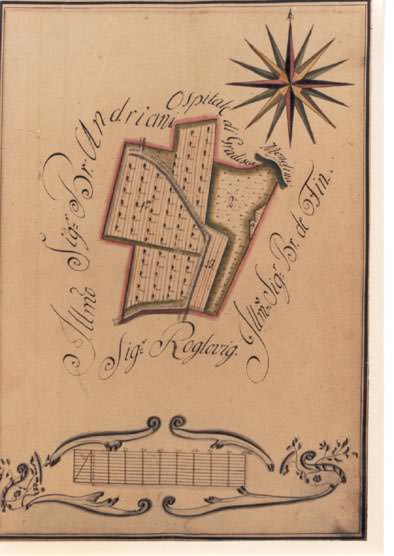 Illmo Sigr Br Andriani
Ospitale di Gradisca
Illmo Sigr Br. de Fin.
Sigr Roglovig.
2